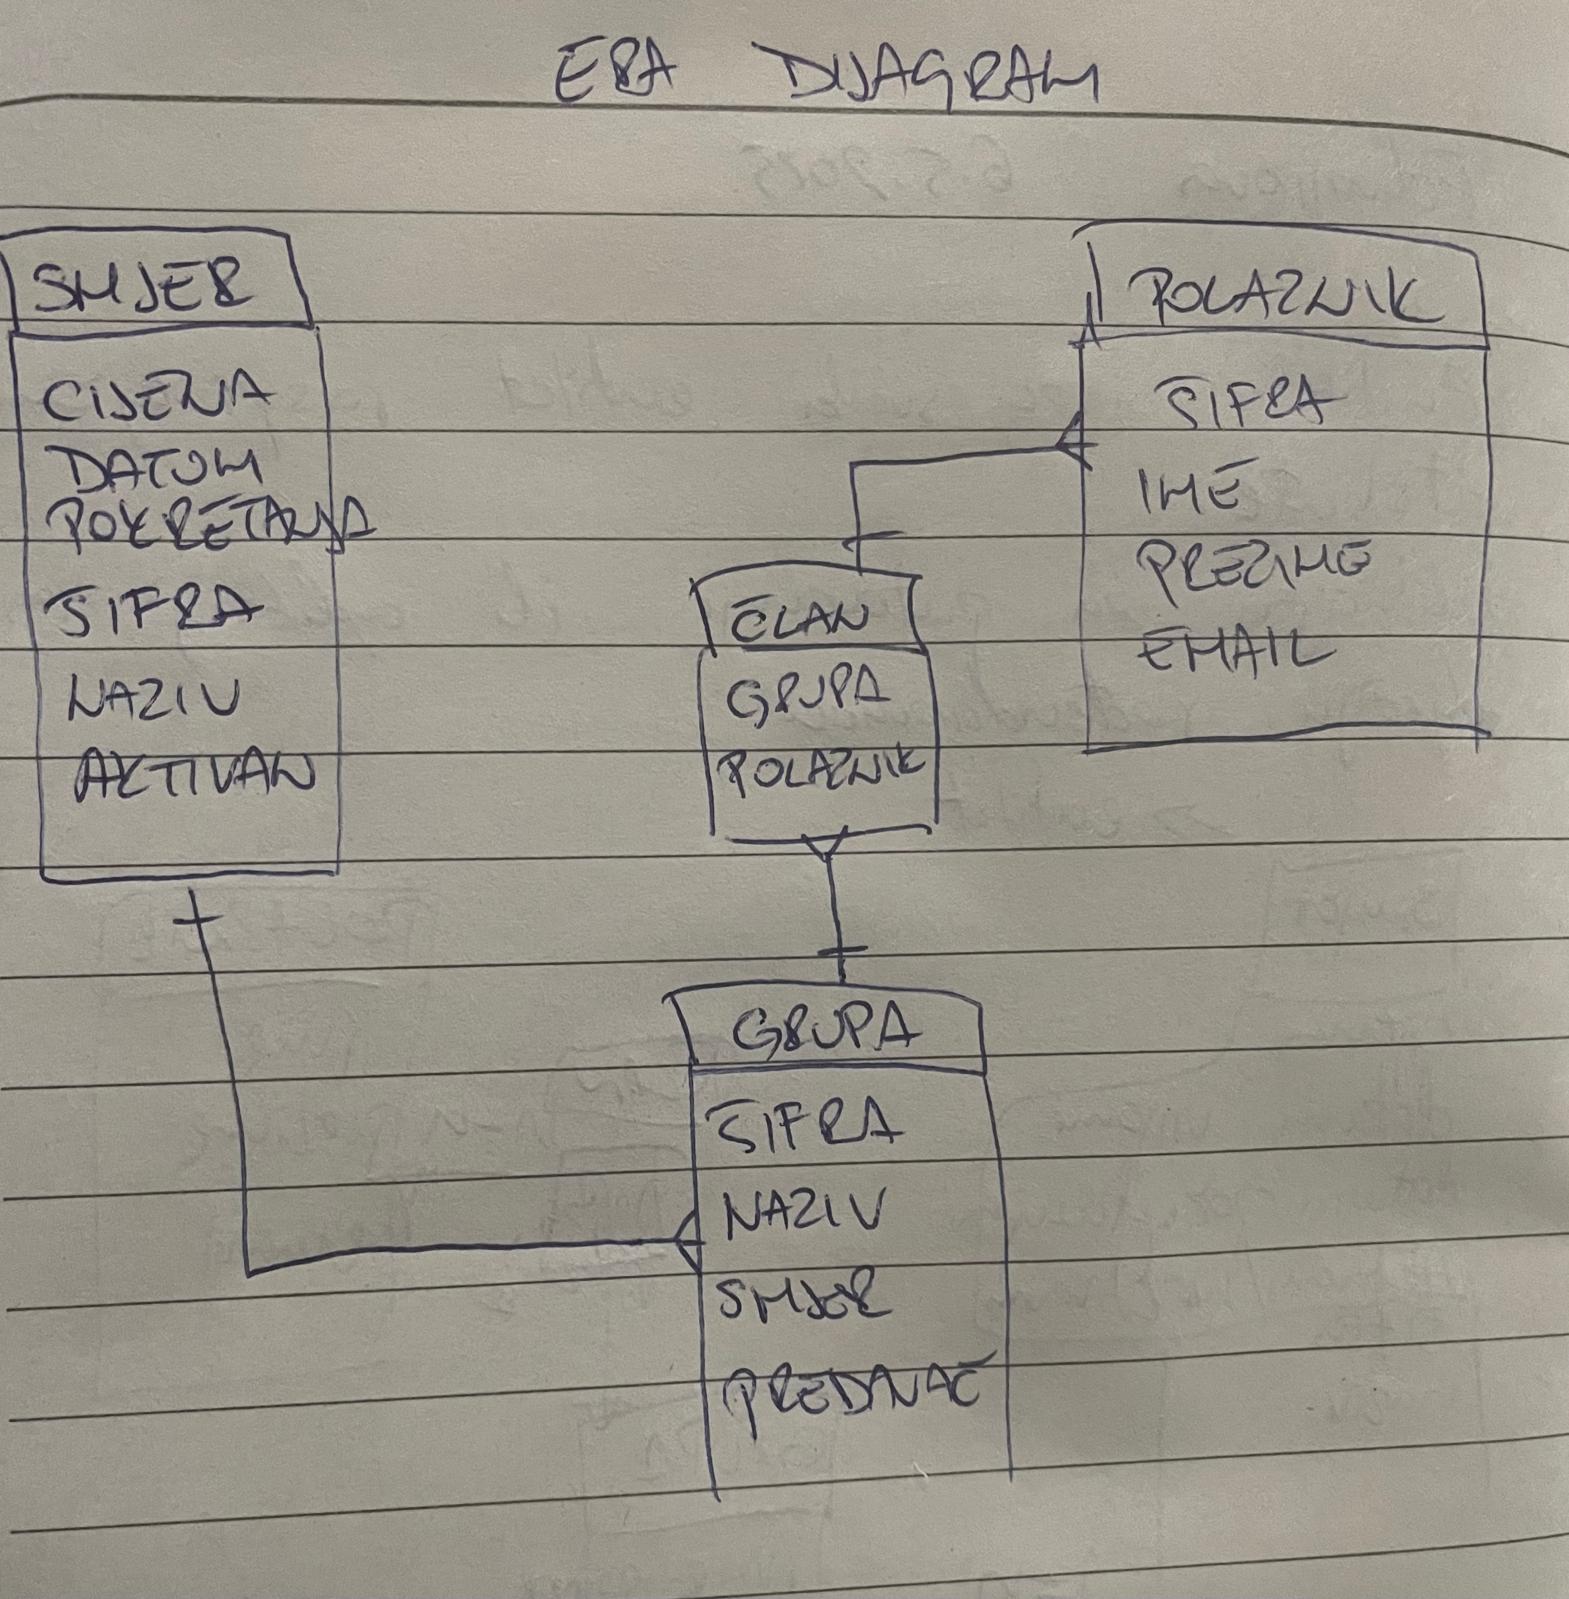 ERA DIJAGRAM
SMJER
CIJENA
DATUM
POKRETANJA
ŠIFRA
NAZIV
AKTIVAN
POLAZNIK
ŠIFRA
IME
PREZIME
EMAIL
ČLAN
GRUPA
POLAZNIK
GRUPA
ŠIFRA
NAZIV
SMJER
PREDAVAČ